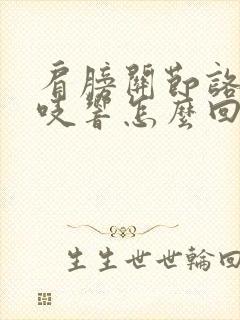 肩膀關節咯
吱響怎麼回
生生世世輪回